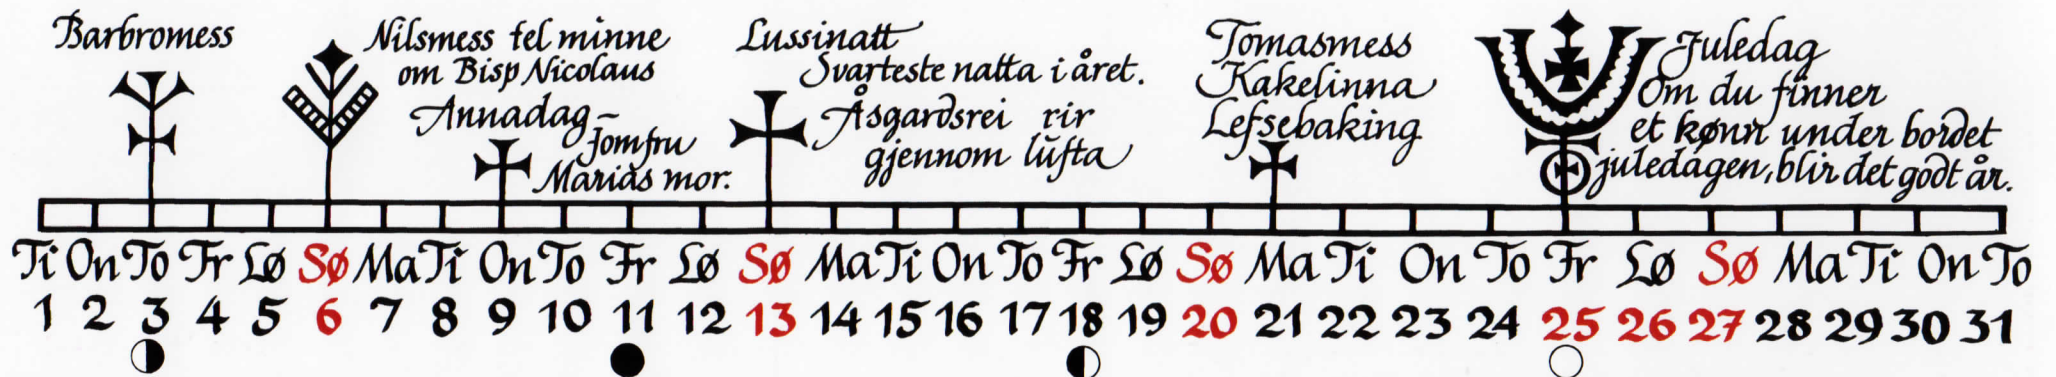 Barbromess
Nilsmess tel minne
om Bisp Nicolaus
Annadag –
Jomfru
Marias mor.
Lussinatt
Svarteste natta i året.
Åsgardsrei rir
gjennom lufta
Tomasmess
Kakelinna
Lefsebaking
Juledag
Om du finner
et kønn under bordet
juledagen, blir det godt år.
Ti On To Fr Lø Sø Ma Ti On To Fr Lø Sø Ma Ti On To Fr Lø Sø Ma Ti On To Fr Lø Sø Ma Ti On To
1 2 3 4 5 6 7 8 9 10 11 12 13 14 15 16 17 18 19 20 21 22 23 24 25 26 27 28 29 30 31